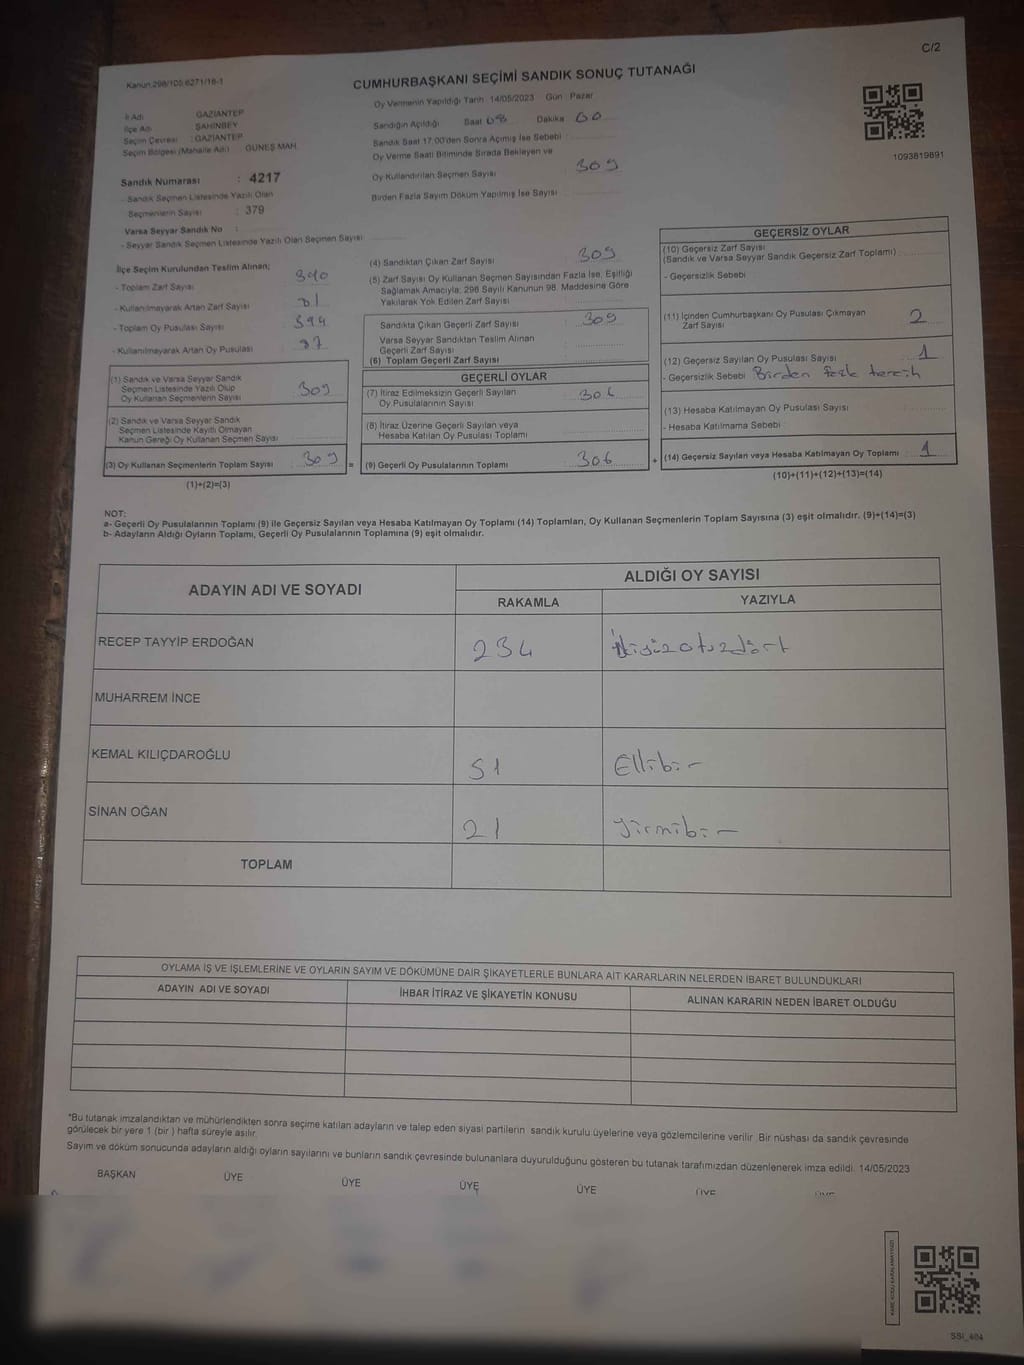 C/2
Kanun:298/105,6271/18-1
CUMHURBAŞKANI SEÇİMİ SANDIK SONUÇ TUTANAĞI
Oy Vermenin Yapıldığı Tarih 14/05/2023 Gün : Pazar
İl Adı GAZİANTEP
İlçe Adı ŞAHİNBEY
Seçim Çevresi : GAZİANTEP
Seçim Bölgesi (Mahalle Adı) : GÜNEŞ MAH.
Sandığın Açıldığı Saat 08 Dakika 00
Sandık Saat 17:00'den Sonra Açılmış İse Sebebi :
Oy Verme Saati Bitiminde Sırada Bekleyen ve
Oy Kullandırılan Seçmen Sayısı 309
Birden Fazla Sayım Döküm Yapılmış İse Sayısı :
1093819891
Sandık Numarası : 4217
- Sandık Seçmen Listesinde Yazılı Olan
Seçmenlerin Sayısı : 379
Varsa Seyyar Sandık No :
- Seyyar Sandık Seçmen Listesinde Yazılı Olan Seçmen Sayısı
İlçe Seçim Kurulundan Teslim Alınan;
- Toplam Zarf Sayısı 390
- Kullanılmayarak Artan Zarf Sayısı 81
- Toplam Oy Pusulası Sayısı
- Kullanılmayarak Artan Oy Pusulası 87
(1) Sandık ve Varsa Seyyar Sandık
Seçmen Listesinde Yazılı Olup
Oy Kullanan Seçmenlerin Sayısı 309
(2) Sandık ve Varsa Seyyar Sandık
Seçmen Listesinde Kayıtlı Olmayan
Kanun Gereği Oy Kullanan Seçmen Sayısı
(3) Oy Kullanan Seçmenlerin Toplam Sayısı 309 =
(1)+(2)=(3)
(4) Sandıktan Çıkan Zarf Sayısı 309
(5) Zarf Sayısı Oy Kullanan Seçmen Sayısından Fazla İse, Eşitliği
Sağlamak Amacıyla; 298 Sayılı Kanunun 98. Maddesine Göre
Yakılarak Yok Edilen Zarf Sayısı
Sandıkta Çıkan Geçerli Zarf Sayısı 309
Varsa Seyyar Sandıktan Teslim Alınan
Geçerli Zarf Sayısı
(6) Toplam Geçerli Zarf Sayısı
GEÇERLİ OYLAR
(7) İtiraz Edilmeksizin Geçerli Sayılan
Oy Pusulalarının Sayısı 306
(8) İtiraz Üzerine Geçerli Sayılan veya
Hesaba Katılan Oy Pusulası Toplamı
(9) Geçerli Oy Pusulalarının Toplamı 306 +
GEÇERSİZ OYLAR
(10) Geçersiz Zarf Sayısı
(Sandık ve Varsa Seyyar Sandık Geçersiz Zarf Toplamı)
- Geçersizlik Sebebi
(11) İçinden Cumhurbaşkanı Oy Pusulası Çıkmayan
Zarf Sayısı 2
(12) Geçersiz Sayılan Oy Pusulası Sayısı 1
- Geçersizlik Sebebi Birden fazla tercih
(13) Hesaba Katılmayan Oy Pusulası Sayısı
- Hesaba Katılmama Sebebi
(14) Geçersiz Sayılan veya Hesaba Katılmayan Oy Toplamı : 1
(10)+(11)+(12)+(13)=(14)
NOT:
a- Geçerli Oy Pusulalarının Toplamı (9) ile Geçersiz Sayılan veya Hesaba Katılmayan Oy Toplamı (14) Toplamları, Oy Kullanan Seçmenlerin Toplam Sayısına (3) eşit olmalıdır. (9)+(14)=(3)
b- Adayların Aldığı Oyların Toplamı, Geçerli Oy Pusulalarının Toplamına (9) eşit olmalıdır.
ADAYIN ADI VE SOYADI
ALDIĞI OY SAYISI
RAKAMLA YAZIYLA
RECEP TAYYİP ERDOĞAN 234 İkiyüzotuzdört
MUHARREM İNCE
KEMAL KILIÇDAROĞLU 51 Ellibir
SİNAN OĞAN 21 yirmibir
TOPLAM
OYLAMA İŞ VE İŞLEMLERİNE VE OYLARIN SAYIM VE DÖKÜMÜNE DAİR ŞİKAYETLERLE BUNLARA AİT KARARLARIN NELERDEN İBARET BULUNDUKLARI
ADAYIN ADI VE SOYADI İHBAR İTİRAZ VE ŞİKAYETİN KONUSU ALINAN KARARIN NEDEN İBARET OLDUĞU
*Bu tutanak imzalandıktan ve mühürlendikten sonra seçime katılan adayların ve talep eden siyasi partilerin sandık kurulu üyelerine veya gözlemcilerine verilir. Bir nüshası da sandık çevresinde
görülecek bir yere 1 (bir ) hafta süreyle asılır.
Sayım ve döküm sonucunda adayların aldığı oyların sayılarını ve bunların sandık çevresinde bulunanlara duyurulduğunu gösteren bu tutanak tarafımızdan düzenlenerek imza edildi. 14/05/2023
BAŞKAN ÜYE ÜYE ÜYE ÜYE ÜYE ÜYE
KARE KODU KARALAMAYINIZ!
SSI_404